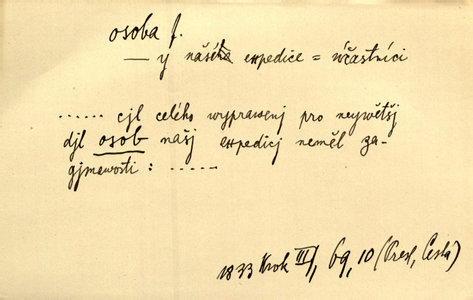 osoba f.
— y naší expedice = účastníci
...... cjl celého wyprawenj pro neywětšj
djl osob našj expedicj neměl za-
gjmawosti : ......
1833 Krok III, 69, 10 (Presl, Cesta)